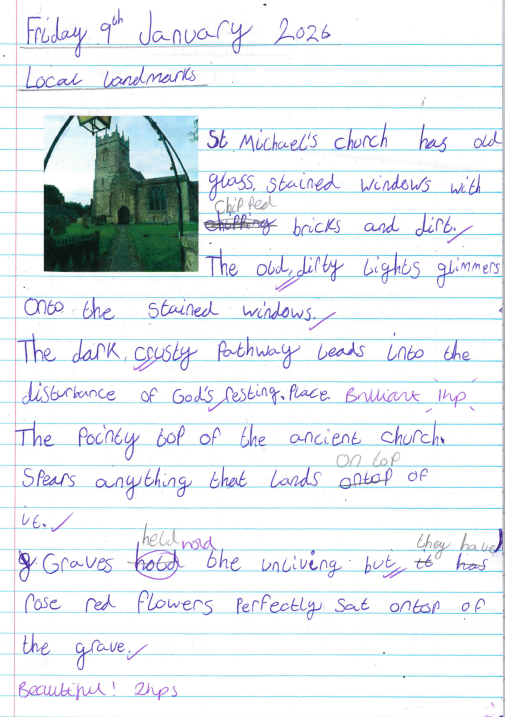 Friday 9th January 2026
Local Landmarks
St Michael's church has old
glass, stained windows with
chipped
chipping bricks and dirt.
The old, dirty lights glimmers
onto the stained windows.
The dark, crusty pathway leads into the
disturbance of God's resting. Place. Brilliant 1hp
The pointy top of the ancient church.
on top
Spears anything that lands ontop of
it.
held nold they have
g Graves hold the unliving but it has
rose red flowers perfectly sat ontop of
the grave.
Beautiful! 2hps